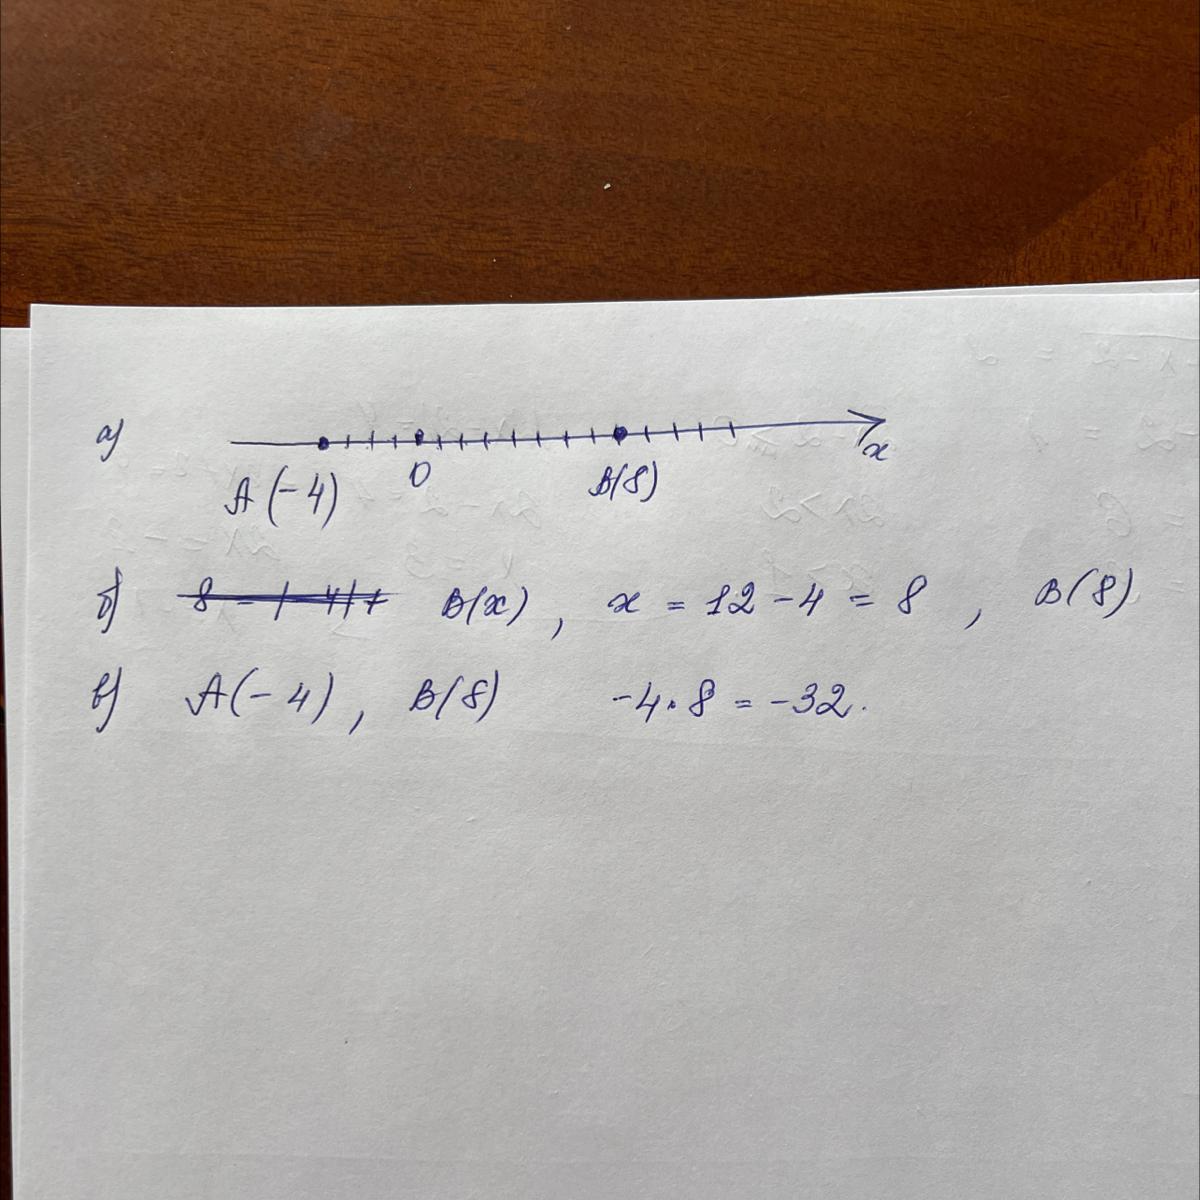 а)
x
A(-4) 0 B(8)
б) B(x), x = 12 - 4 = 8, B(8)
в) A(-4), B(8) -4·8 = -32.